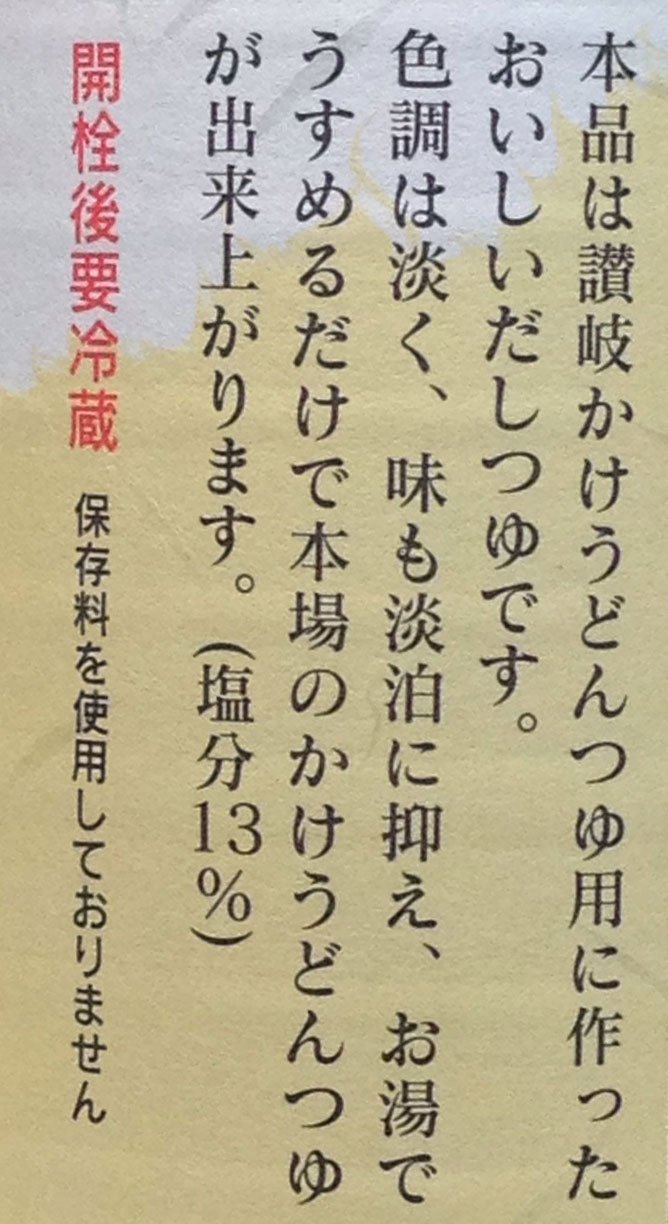 本品は讃岐かけうどんつゆ用に作った
おいしいだしつゆです。
色調は淡く、味も淡泊に抑え、お湯で
うすめるだけで本場のかけうどんつゆ
が出来上がります。(塩分13%)
開栓後要冷蔵 保存料を使用しておりません